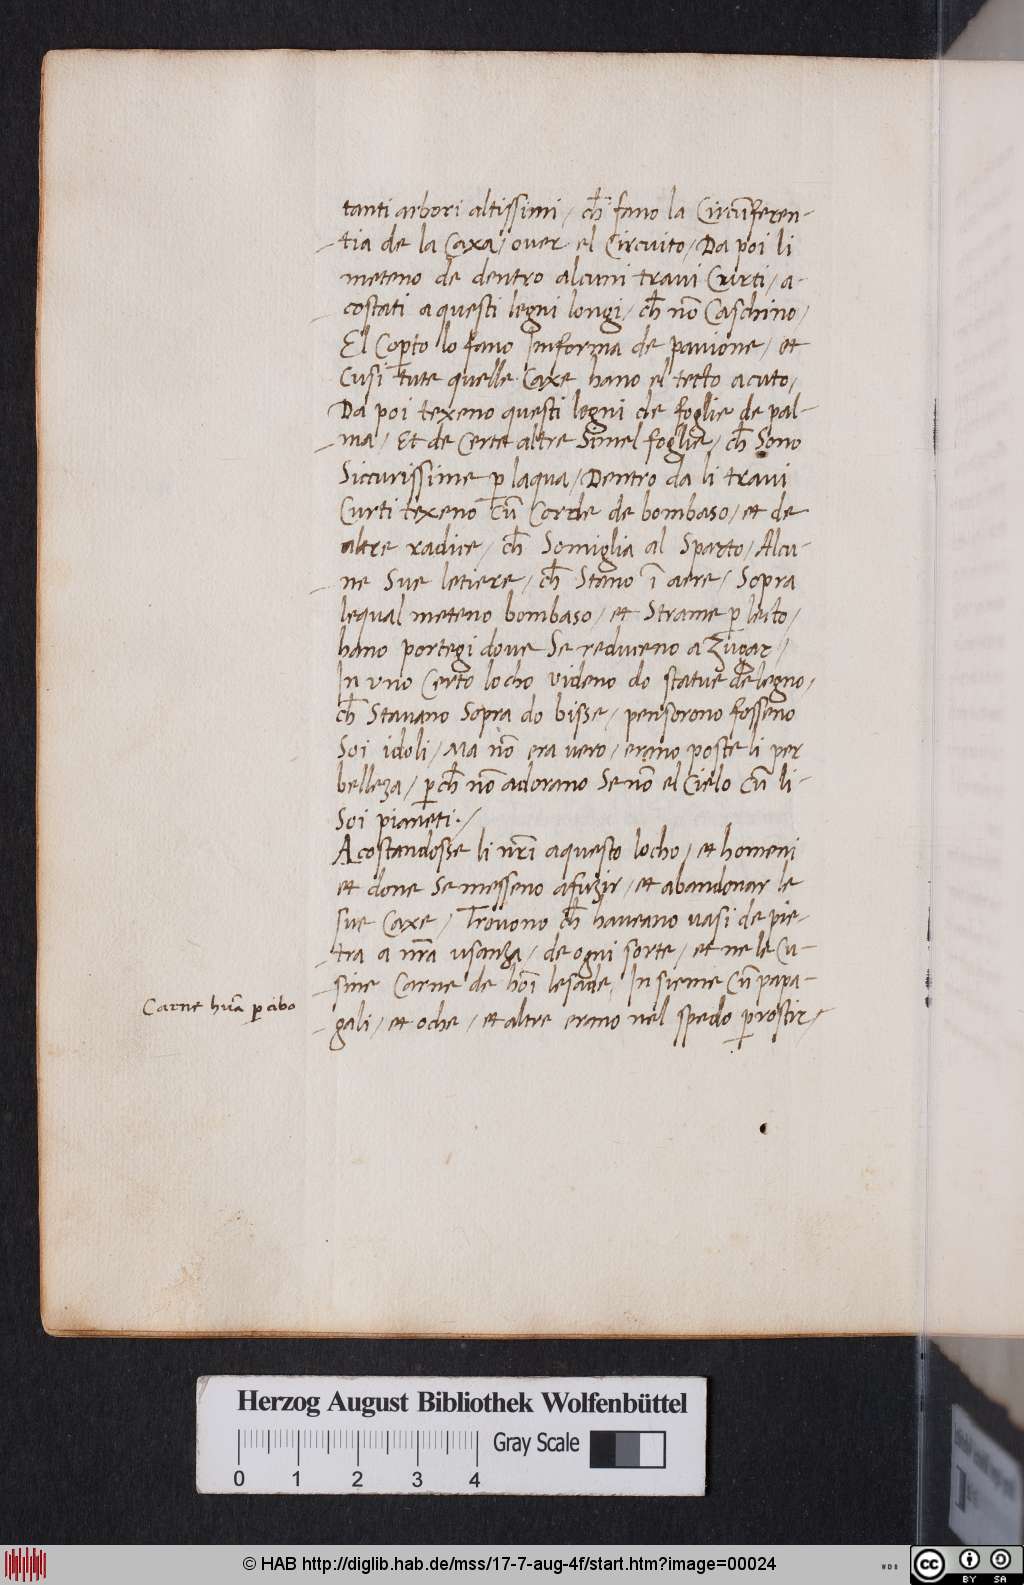 tanti arbori altissimi / ch̄ fano la Circūferen-
tia de la Caxa / over el Circuito / Da poi li
meteno de dentro alcuni travi Curti / a-
costati a questi legni longi / ch̄ nō Caschino /
El Cop̄to lo fano Informa de pavione / et
Cusi tute quelle Caxe hano el tetto acuto /
Da poi texeno questi legni de foglie de pal-
ma / Et de Certe altre Simel foglie / ch̄ Sono
Siccurissime p laqua / Dentro da li travi
Curti texeno cū Corde de bombaso / et de
altre radice / ch̄ Somiglia al Sparto / Alcu-
ne Sue letiere / ch̄ Stano ī aere / Sopra
lequal meteno bombaso / et Strame p lecto /
hano portegi dove Se reduceno a Zugar /
In uno Certo locho videno do statue de legno /
ch̄ Stavano Sopra do bisse / pensorono fosseno
Soi idoli / Ma nō era vero / erano poste li per
belleza / p̄ch̄ nō adorano Se nō el Cielo cū li
Soi pianeti . /
Acostandosse li nr̄i aquesto locho / et homeni
et done Se messeno afuzir / et abandonar le
sue Caxe / Trovono ch̄ haveano vasi de pie-
tra a nr̄a usanza / de ogni sorte / et ne le Cu-
sine Carne de hōi lesade / Insieme Cū papa-
gali / et oche / et altre erano nel spedo p rostir /
Carne hūa p cibo
Herzog August Bibliothek Wolfenbüttel
Gray Scale
0 1 2 3 4
© HAB http://diglib.hab.de/mss/17-7-aug-4f/start.htm?image=00024
WDB
cc BY SA